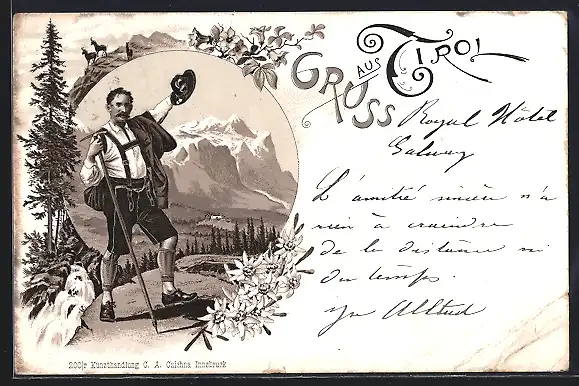 GRUSS AUS TIROL
Royal Hôtel
L'amitié sincère n'a
rien à craindre
de la distance ni
du temps.
200/r Kunsthandlung C. A. Czichna Innsbruck